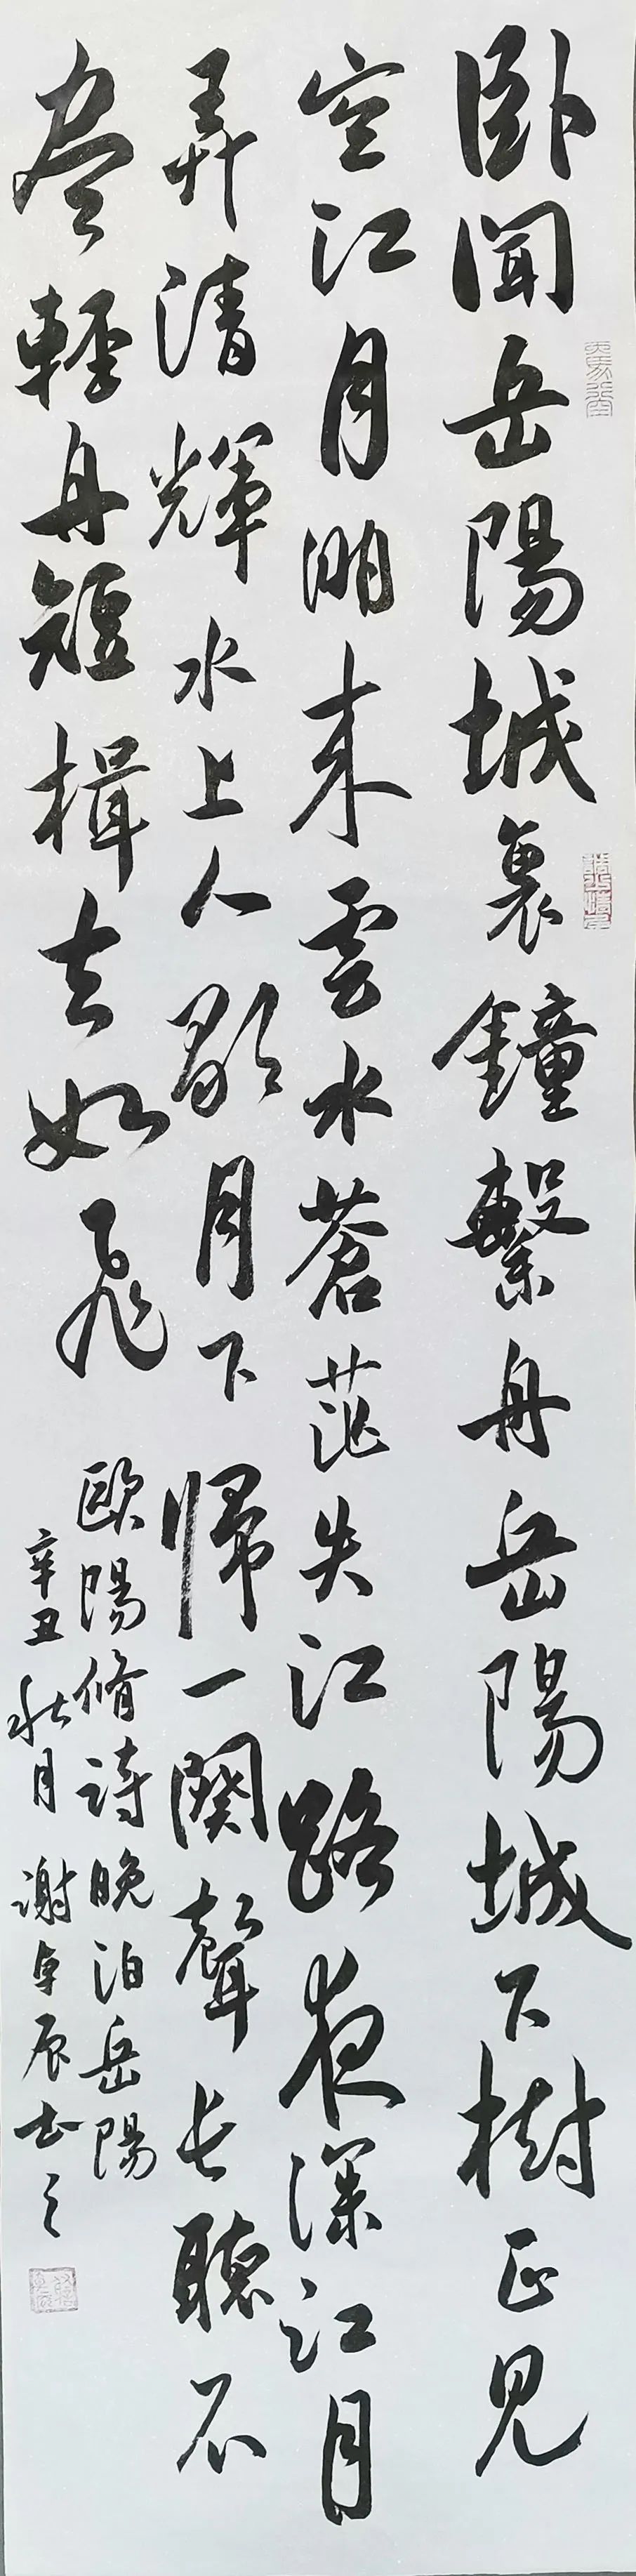 卧聞岳陽城裏鐘繫舟岳陽城下樹正見
空江月明来雲水蒼茫失江路夜深江月
弄清輝水上人歌月下歸一闋聲長聽不
盡輕舟短楫去如飛
歐陽脩詩晚泊岳陽
辛丑秋月謝卓辰書之